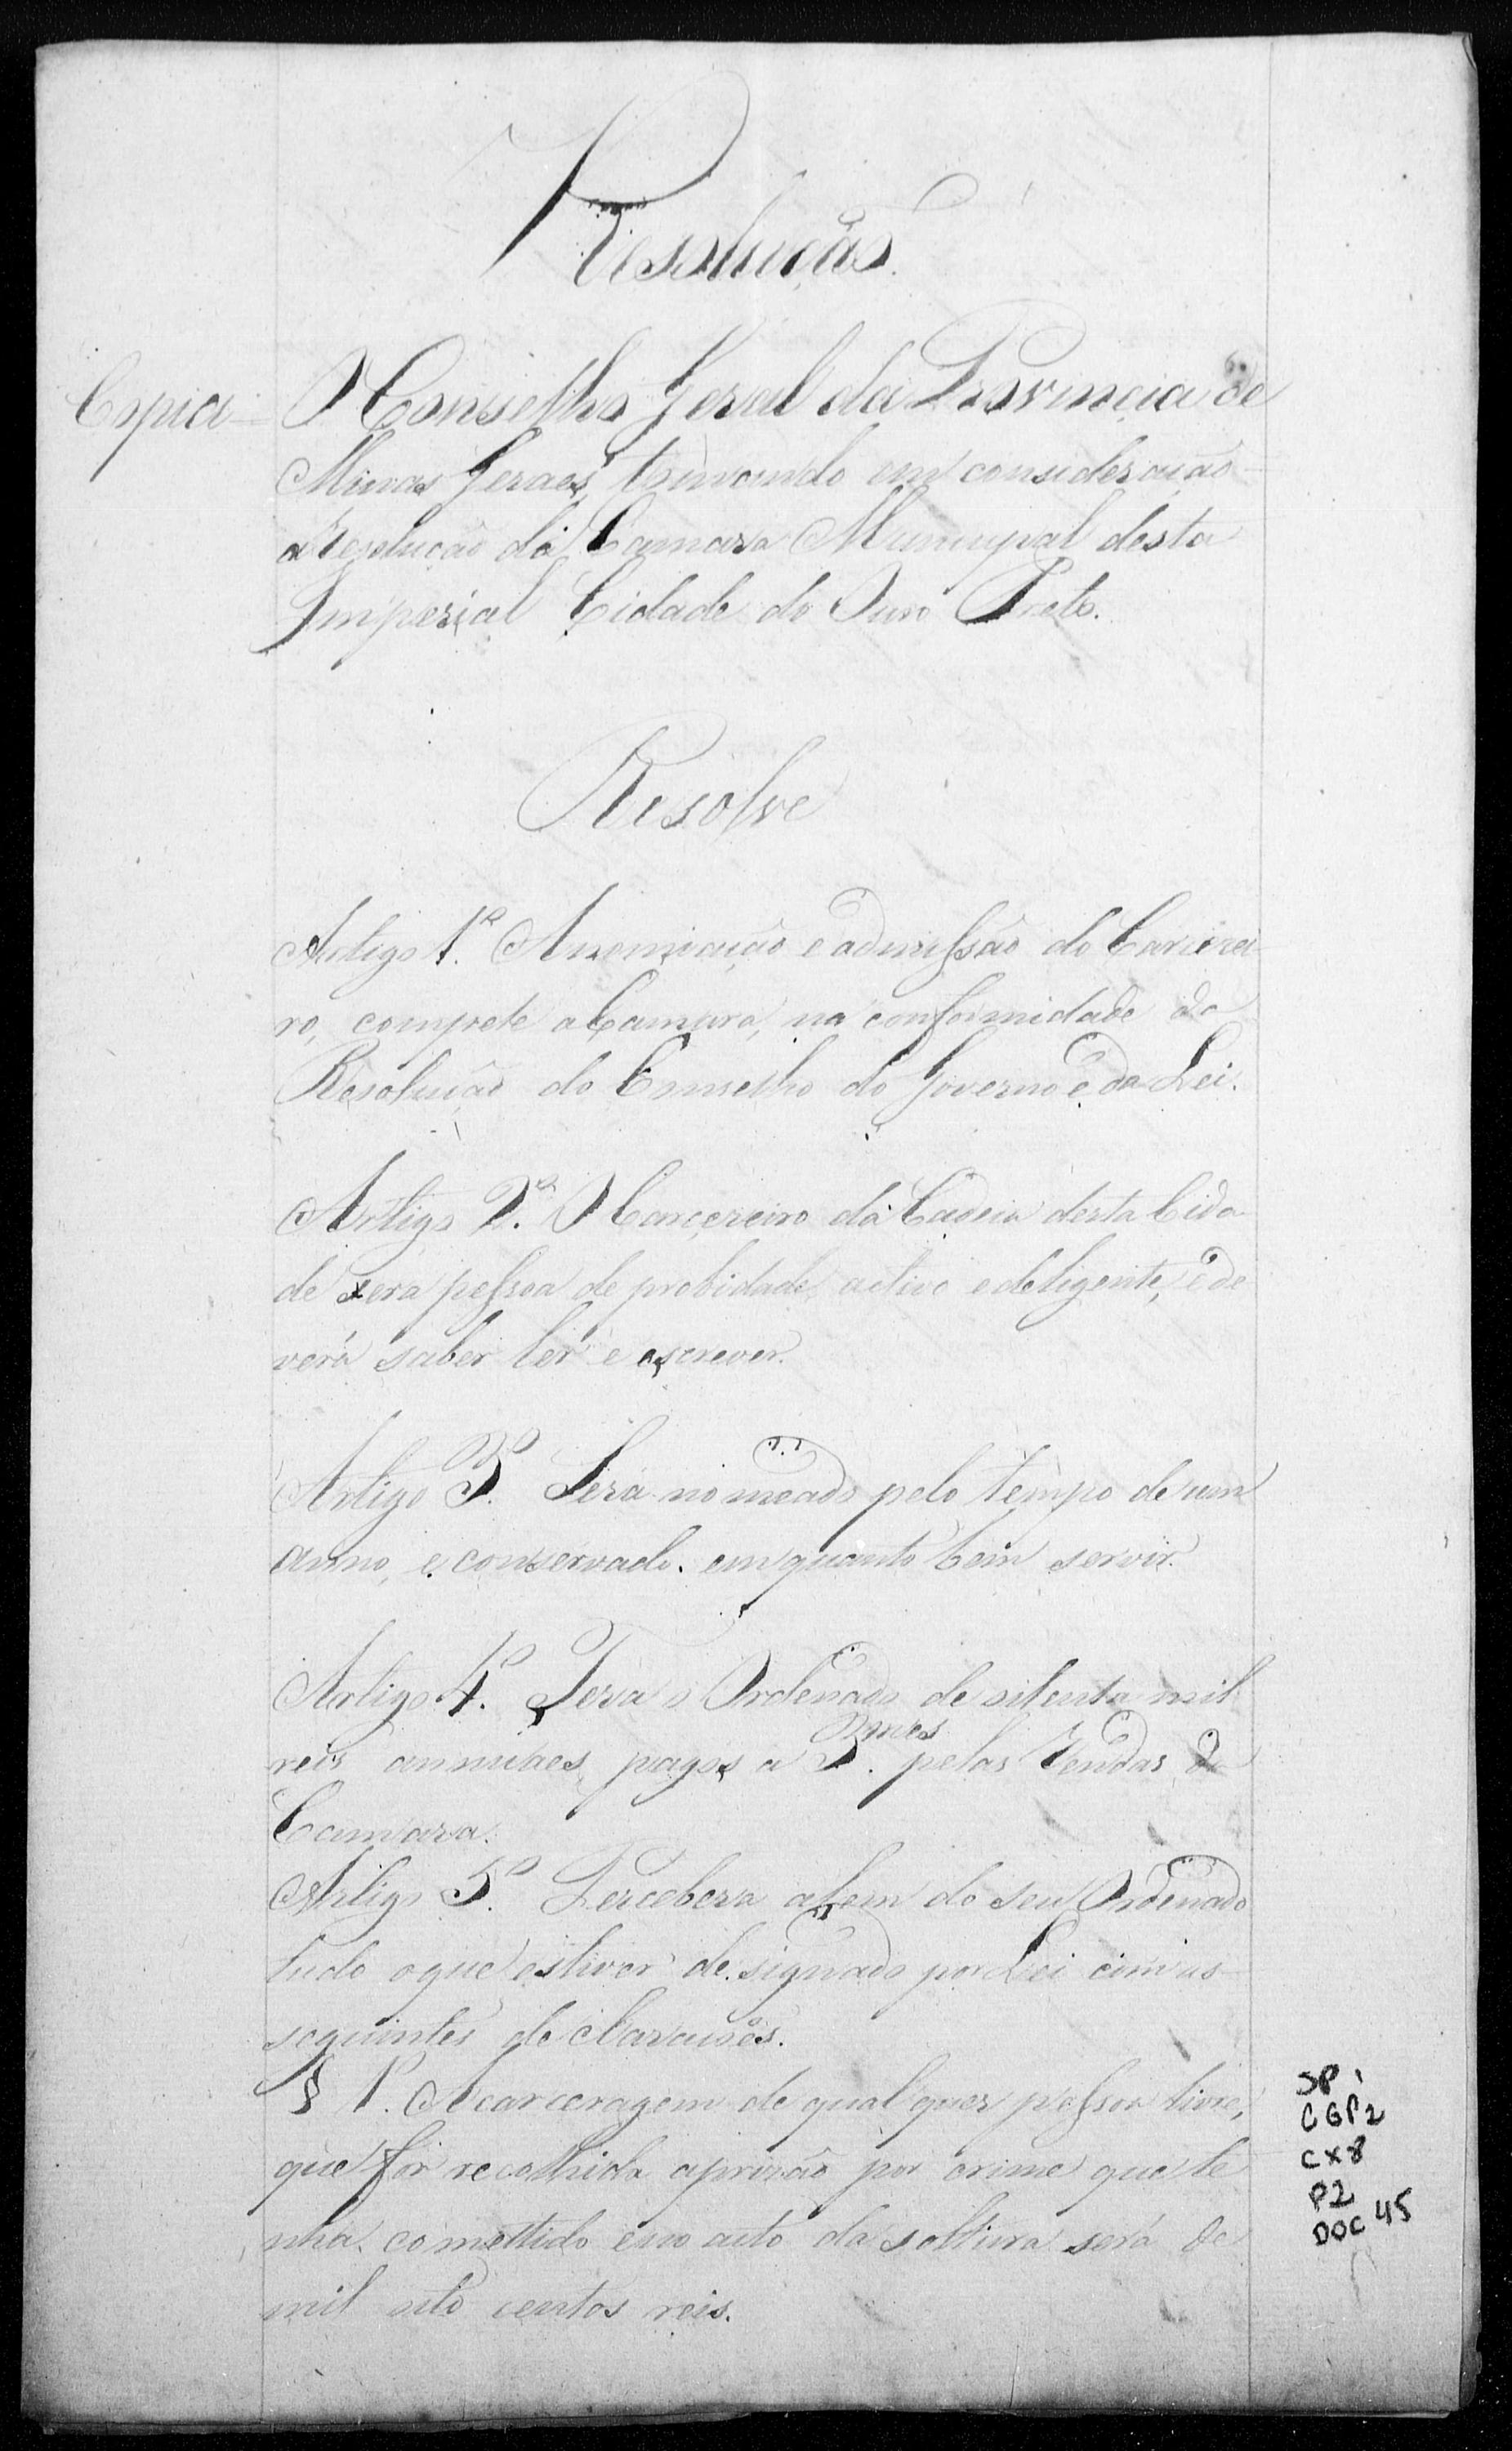 Resolução.
Copia — O Conselho Geral da Provincia de
Minas Geraes, tomando em consideração
a Resolução da Camara Municipal desta
Imperial Cidade do Ouro Preto.
Resolve
Artigo 1º. A nomiação e admissão do Carcerei
ro, compete a Camara, na conformidade da
Resolução do Conselho do Governo e da Lei.
Artigo 2º. O Carcereiro da Cadeia desta Cida
de sera pessoa de probidade, activo e deligente, e de
verá saber lêr e escrever.
Artigo 3º. Será nomeado pelo tempo de um
anno, e conservado. emquanto bem servir.
Artigo 4º. Terá o Ordenado de mil
reis annuaes, pagos a 3.mes pelas Rendas da
Camara.
Artigo 5º. Perceberá alem do seu Ordenado
tudo o que estiver designado por Lei com as
seguintes declaraçoẽs.
§ 1º. A carceragem de qualquer pessoa livre,
que fôr recolhida a prizão por crime que te
nha comettido e no acto da soltura será de
mil centos reis.
SP
CGP2
CX8
P2
DOC 45